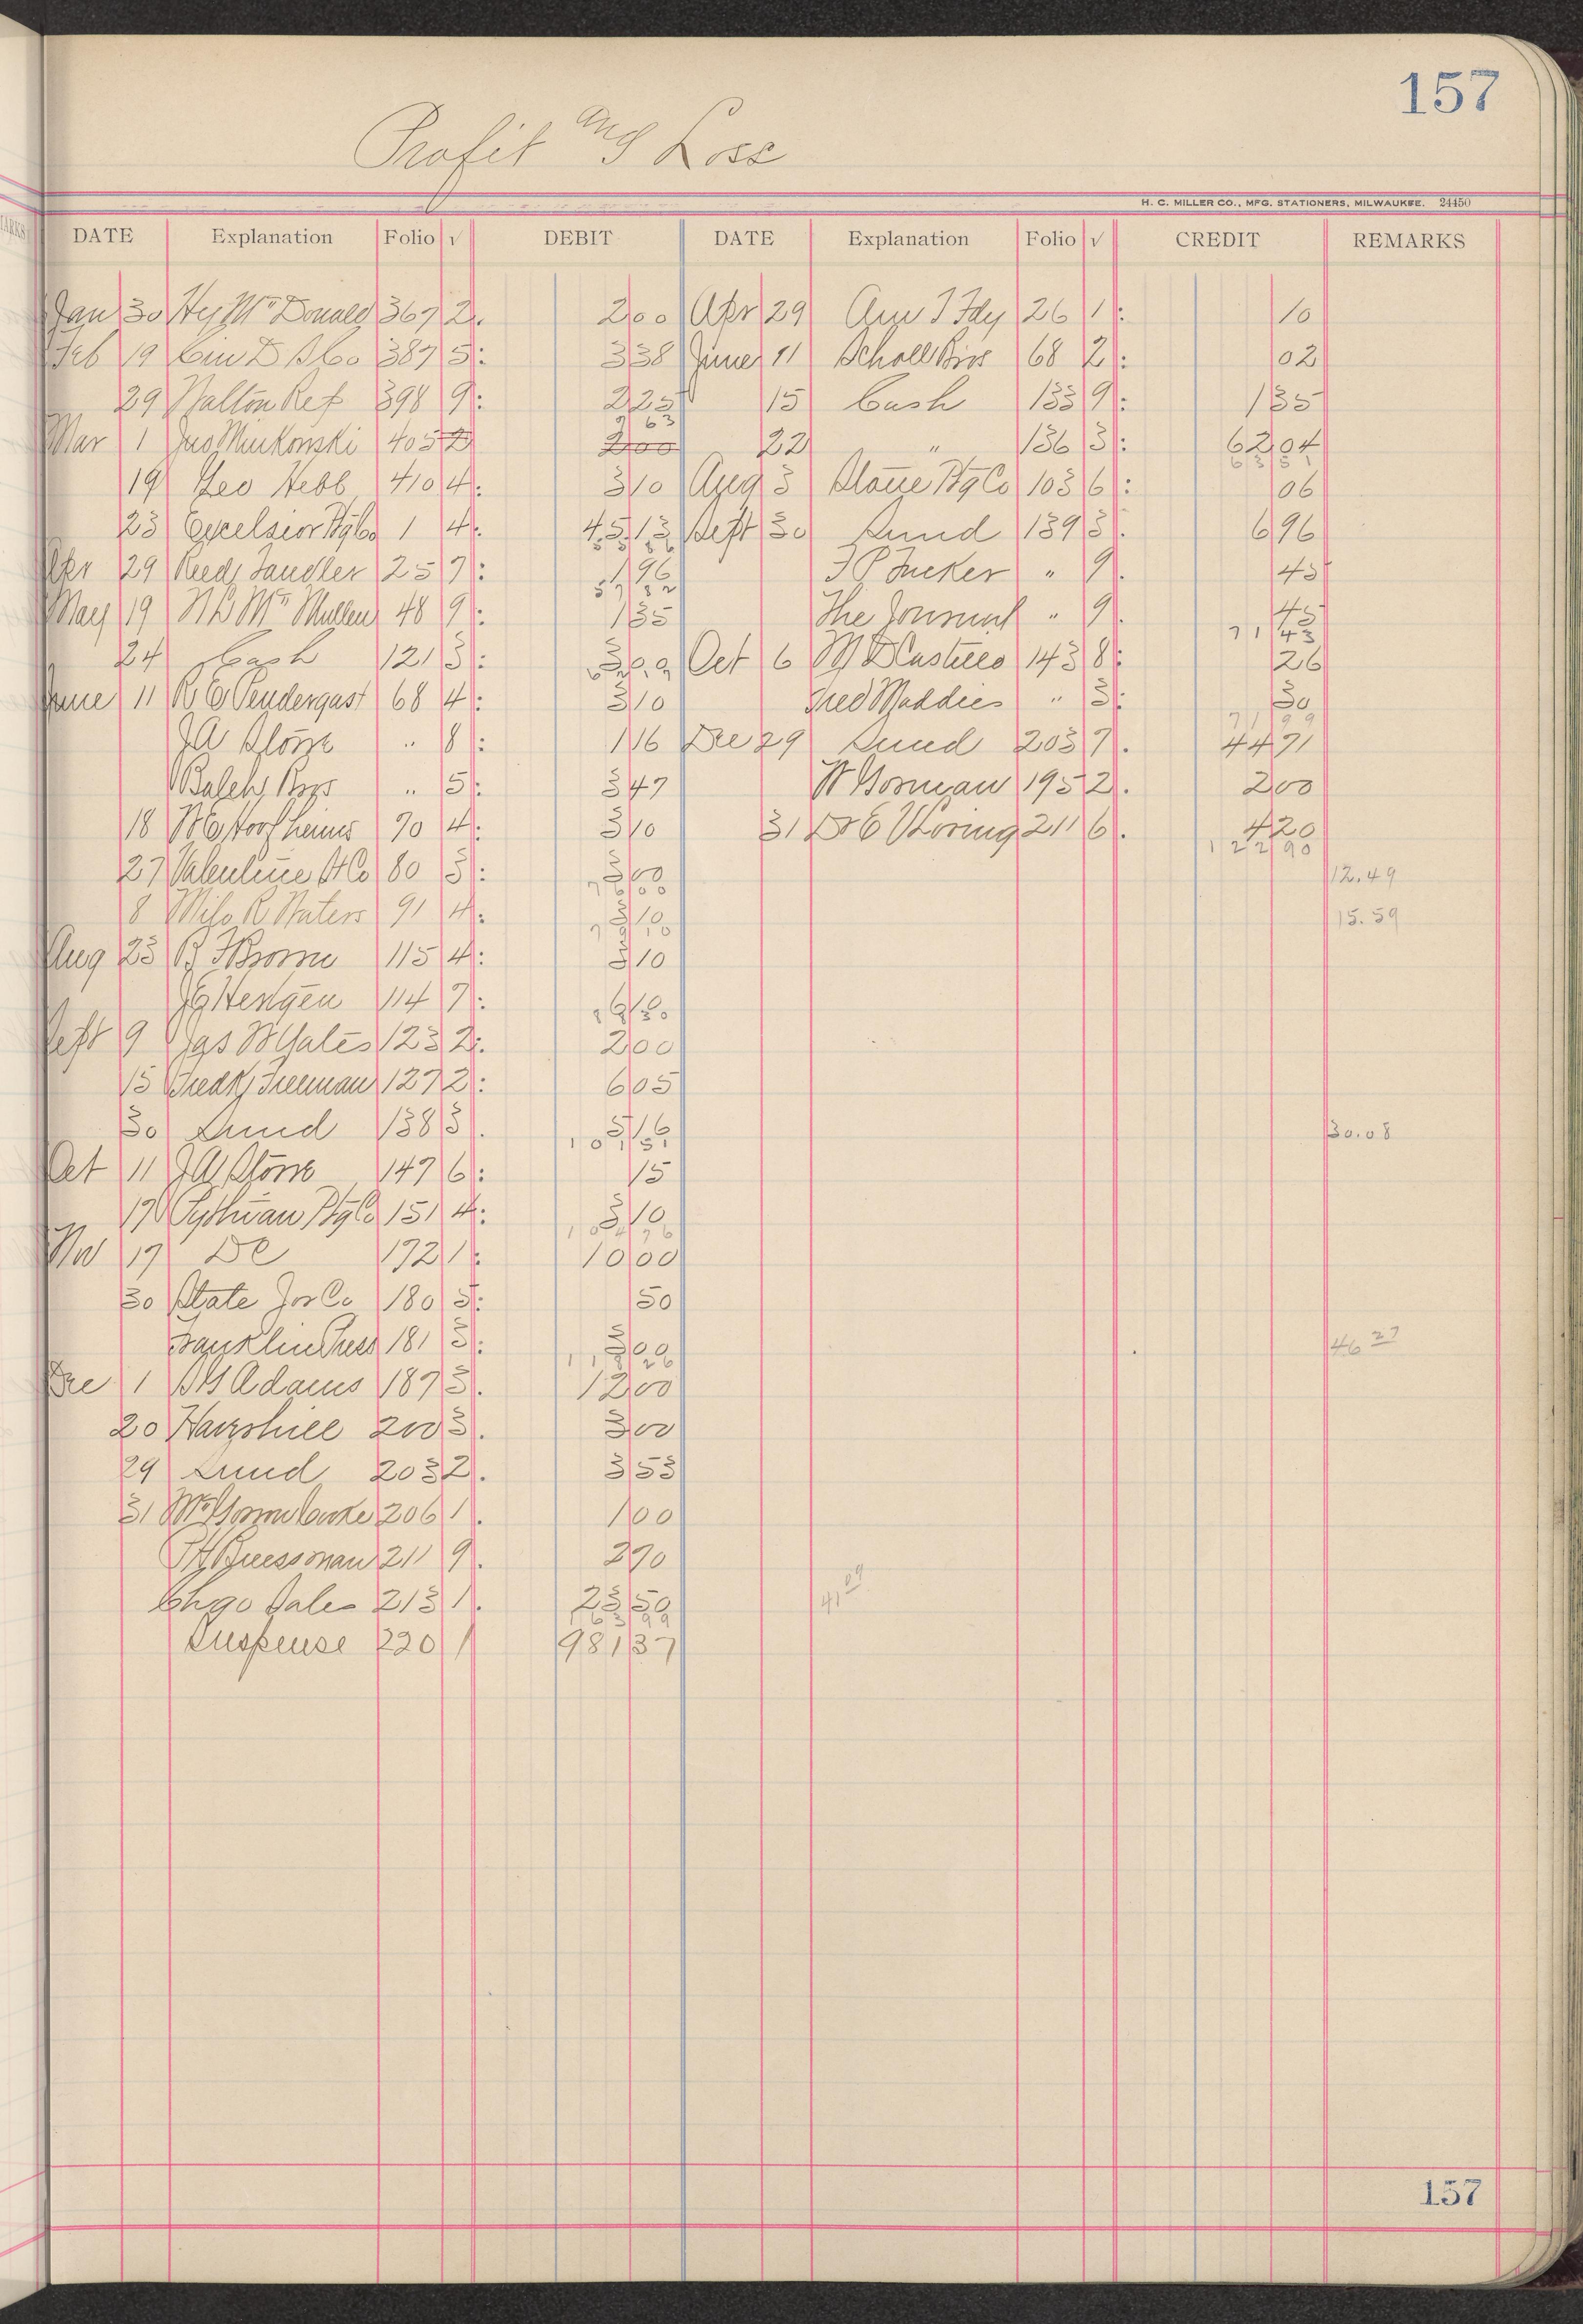 157
Profit and Loss
H. C. MILLER CO., MFG. STATIONERS, MILWAUKEE. 24450
DATE Explanation Folio √ DEBIT DATE Explanation Folio √ CREDIT REMARKS
Jan 30 Hy McDonald 367 2 2 00 Apr 29 Am T Fdy 26 1 10
Feb 19 Cin D S Co 387 5 3 38 June 11 Scholl Bros 68 2 02
29 Walton Ref 398 9 2 25 15 Cash 133 9 1 35
7 63
Mar 1 Jno Minkowski 405 2 2 00 22 " 136 3 62 04
63 51
19 Geo Hebb 410 4 3 10 Aug 3 Stone Ptg Co 103 6 06
23 Excelsior Ptg Co 1 4 45 13 Sept 30 Sund 139 3 6 96
55 86
Apr 29 Reed 25 7 1 96 T P Tucker " 9 45
57 82
May 19 McMullen 48 9 1 35 The Journal " 9 45
71 43
24 Cash 121 3 3 00 Oct 6 M D Castello 143 8 26
June 11 R E Pendergast 68 4 3 10 Fred Maddies " 3 30
71 99
J A Stone " 8 1 16 Dec 29 Sund 203 7 44 71
Balch Bros " 5 3 47 W Gorman 195 2 2 00
18 70 4 3 10 31 Dr E Loring 211 6 4 20
122 90
27 Valentine & Co 80 3 3 00
76 00
12.49
8 Miss R Waters 91 4 3 10
79 10
15.59
Aug 23 Brown 115 4 3 10
J G Hengen 114 7
Sept 9 Jas W Gates 123 2 2 00
15 Fredk Freeman 127 2 6 05
30 Sund 138 3 5 16
101 51
30.08
Oct 11 J A Stone 147 6 15
17 Pythian Ptg Co 151 4 3 10
104 76
Nov 17 Do 172 1 10 00
30 State Jor Co 180 5 50
Franklin Press 181 3 3 00
118 26
46 27
Dec 1 Adams 187 3 12 00
20 200 3 3 00
29 Sund 203 2 3 53
31 206 1 1 00
Buessman 211 9 2 70
Chgo Sales 213 1 23 50
163 99
41 09
Suspense 220 1 981 37
157